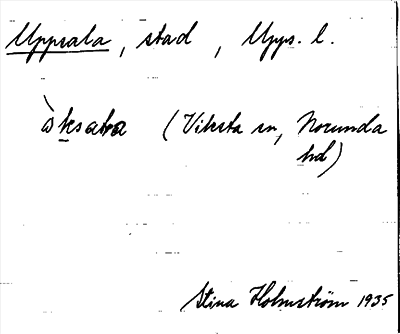 Uppsala, stad, Upps. l.
àksata (Viksta sn, Norunda
hd)
Stina Holmström 1935